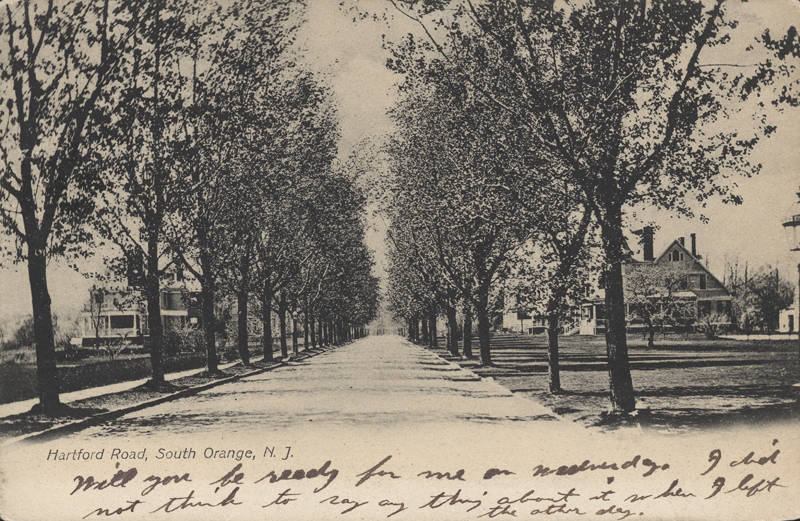 Hartford Road, South Orange, N. J.
Will you be ready for me on Wednesday. I did
not think to say any thing about it when I left
the other day.